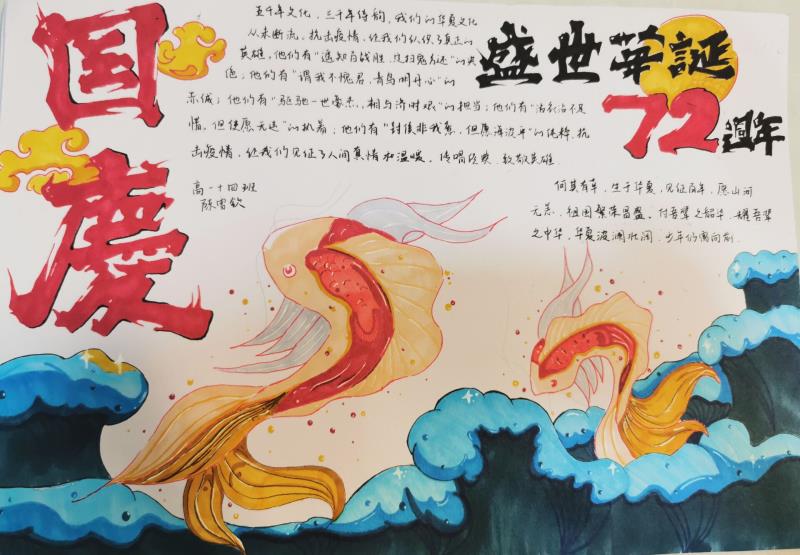 国慶
盛世華誕
72週年
五千年文化，三千年诗韵，我们的华夏文化
从未断流。抗击疫情，让我们认识了真正的
英雄，他们有“遥知百战胜，定扫鬼方还”的
色；他们有“谓我不愧君，青鸟明丹心”的
赤诚；他们有“驱驰一世豪杰，相与济时艰”的担当；他们有“活不足
惜，但使愿无违”的执着；他们有“封侯非我意，但愿海波平”的纯粹。抗
击疫情，让我们见证了人间真情和温暖。传唱经典，致敬英雄
高一十四班
陈雪钦
何其有幸，生于华夏，见证百年，愿山河
无恙，祖国繁荣昌盛。付吾辈之韶华，耀吾辈
之中华，华夏波澜壮阔，少年们勇向前